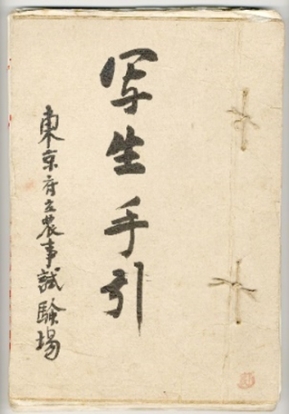 写生手引
東京府立農事試験場